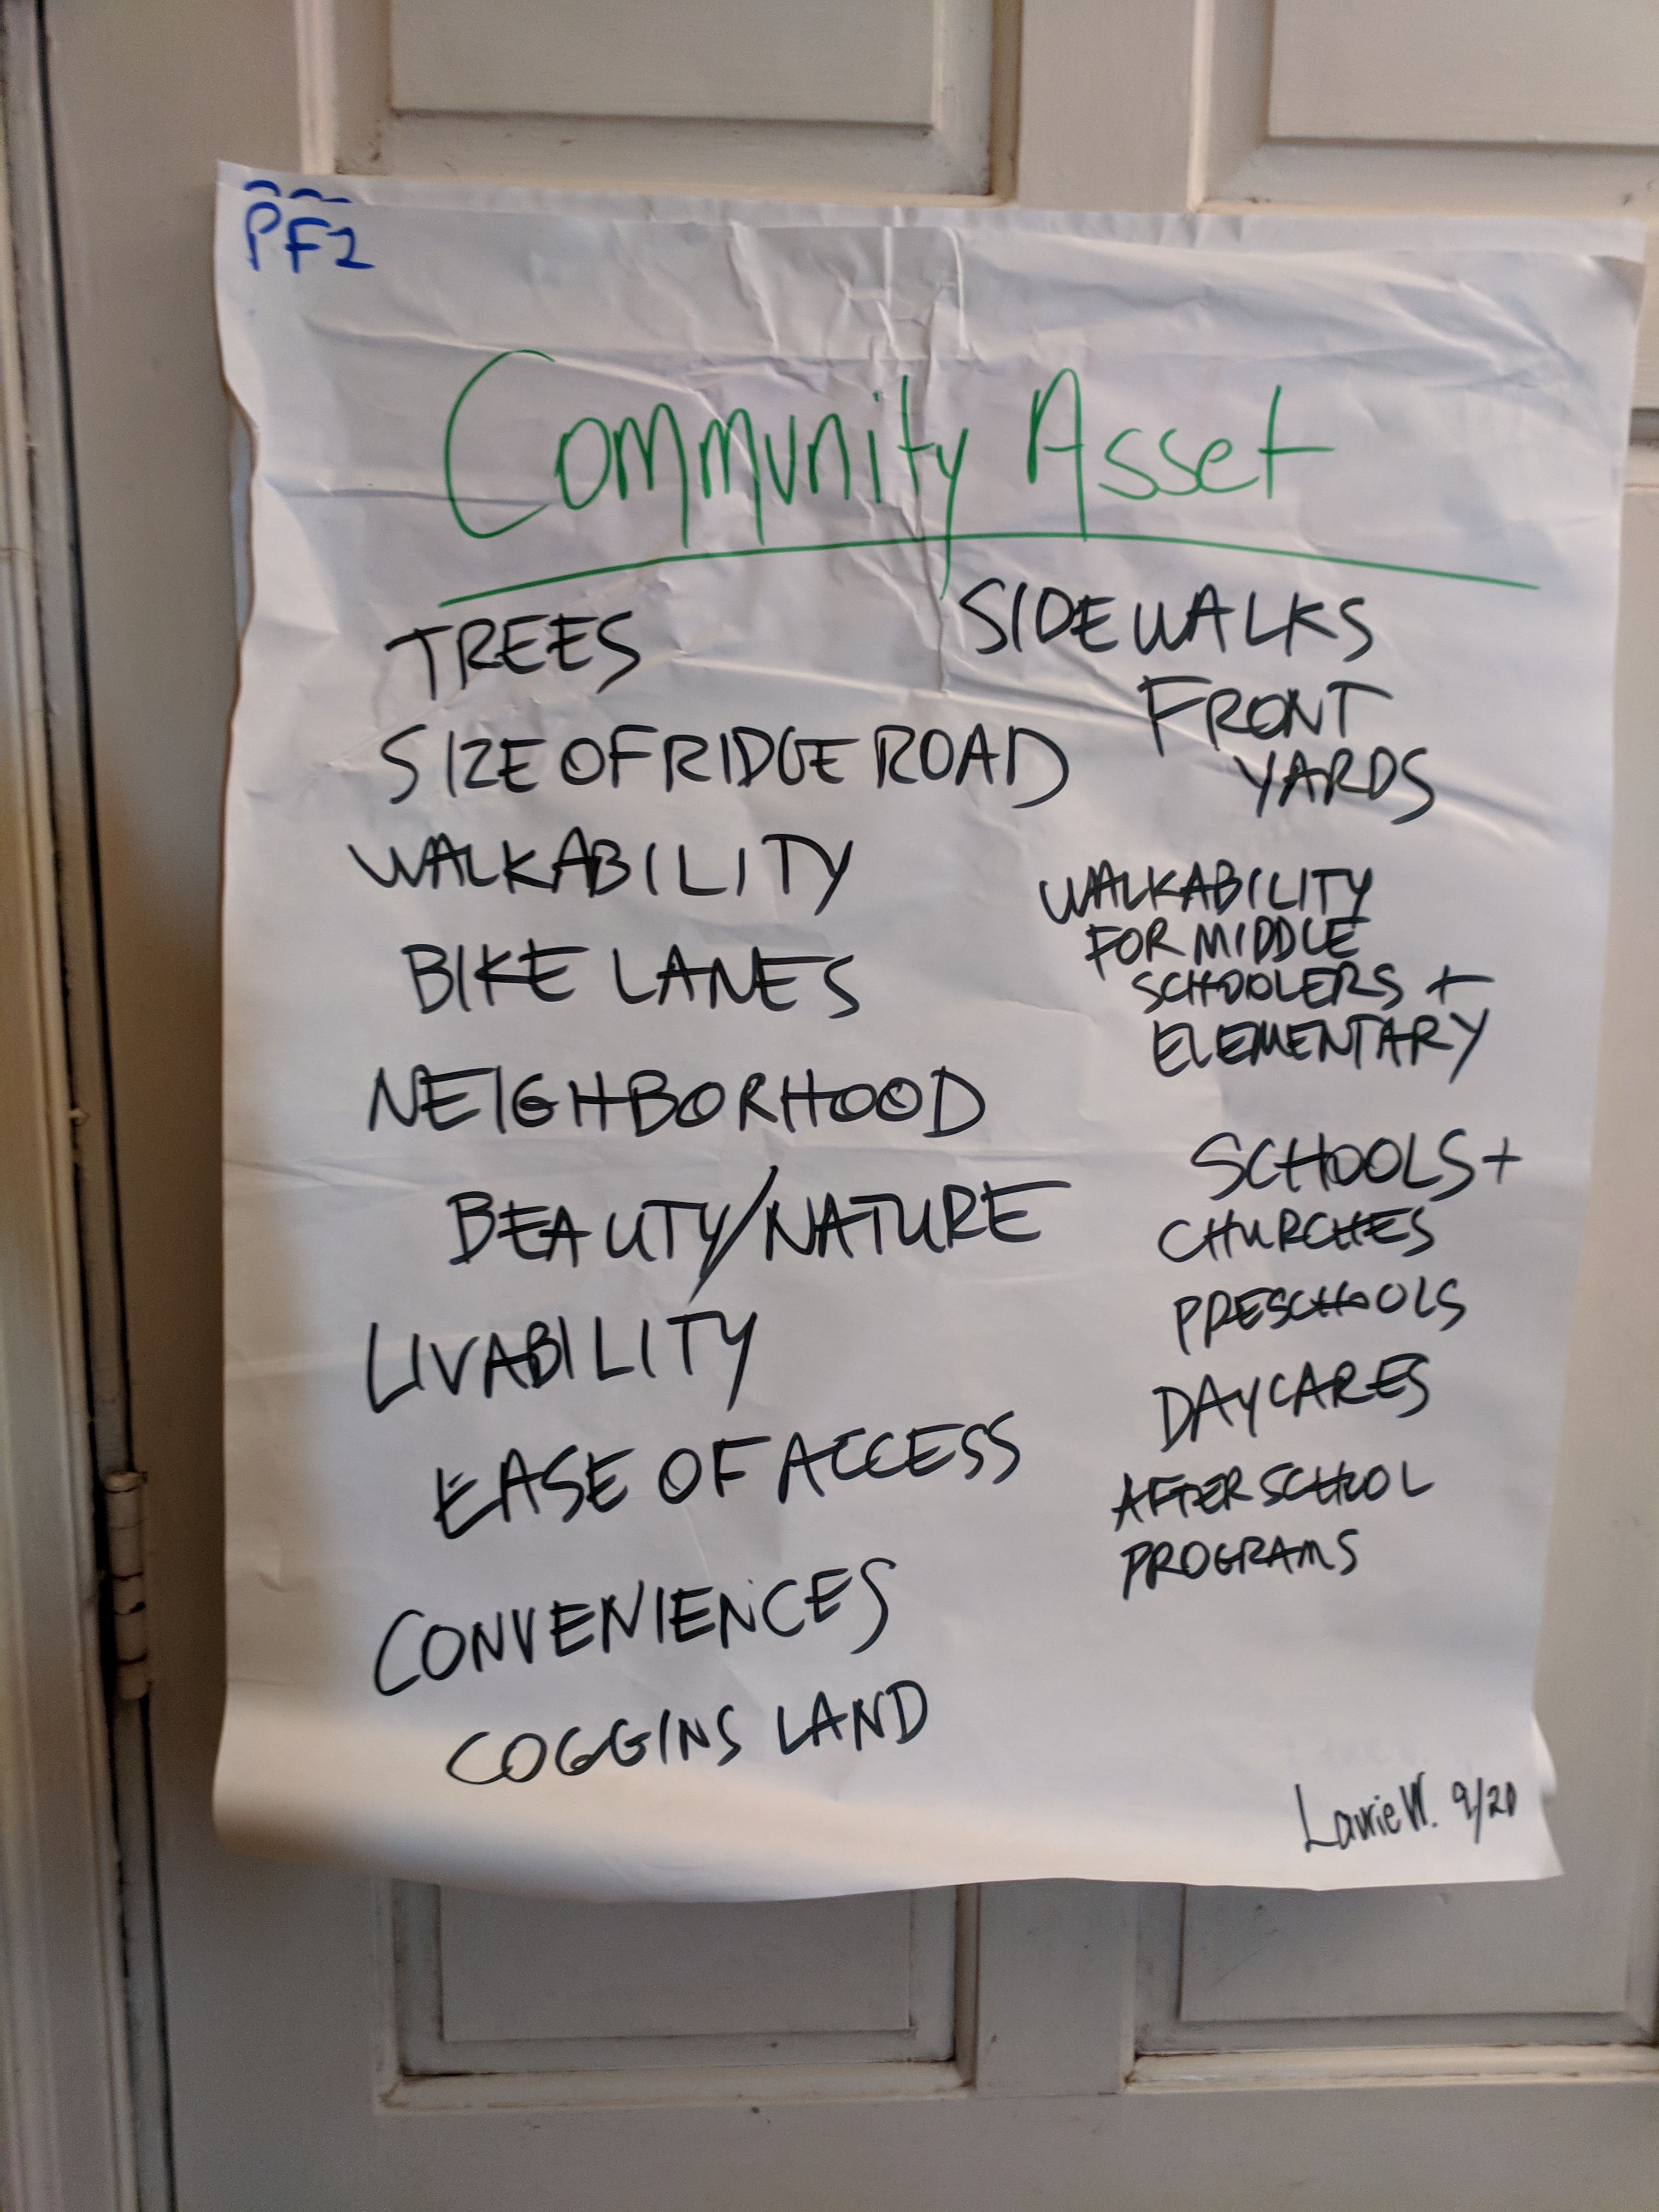 PF2
Community Asset
TREES
SIZE OF RIDGE ROAD
WALKABILITY
BIKE LANES
NEIGHBORHOOD
BEAUTY/NATURE
LIVABILITY
EASE OF ACCESS
CONVENIENCES
COGGINS LAND
SIDEWALKS
FRONT
YARDS
WALKABILITY
FOR MIDDLE
SCHOOLERS +
ELEMENTARY
SCHOOLS +
CHURCHES
PRESCHOOLS
DAYCARES
AFTERSCHOOL
PROGRAMS
Laurie W. 9/20